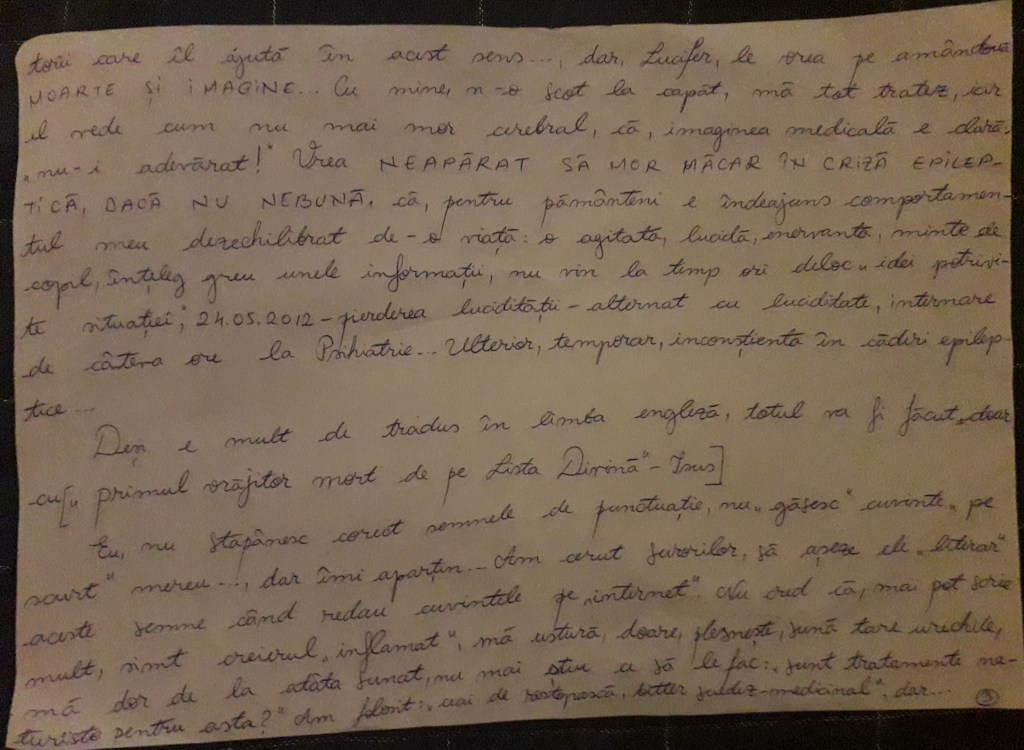 torii care îl ajută în acest sens..., dar, Lucifer, le vrea pe amândouă
MOARTE ȘI IMAGINE... Cu mine, n-o scot la capăt, mă tot tratez, iar
el vede cum nu mai mor cerebral, că, imaginea medicală e clară.
„nu-i adevărat!" Vrea NEAPĂRAT SĂ MOR MĂCAR ÎN CRIZĂ EPILEP-
TICĂ, DACĂ NU NEBUNĂ, că, pentru pământeni e îndeajuns comportamen-
tul meu dezechilibrat de-o viață: o agitată, lucidă, enervantă, minte de
copil, înțeleg greu unele informații, nu vin la timp ori deloc „idei potrivi-
te situației", 24.05.2012 - pierderea lucidității - alternat cu luciditate, internare
de câteva ore la Psihiatrie... Ulterior, temporar, inconștientă în căderi epilep-
tice...
Deși e mult de tradus în limba engleză, totul va fi făcut „doar
cu [„primul vrăjitor mort de pe Lista Divină" - Isus]
Eu, nu stăpânesc corect semnele de punctuație, nu „găsesc" cuvinte „pe
scurt" mereu..., dar îmi aparțin... Am cerut surorilor, să așeze ele „literar"
aceste semne când redau cuvintele pe „internet". Nu cred că, mai pot scrie
mult, simt creierul „inflamat", mă ustură, doare, plesnește, sună tare urechile,
mă dor de la atâta sunat, nu mai știu ce să le fac: „sunt tratamente na-
turiste pentru asta?" Am folosit: „ceai de rostopască, bitter suedez-medicinal", dar... 3